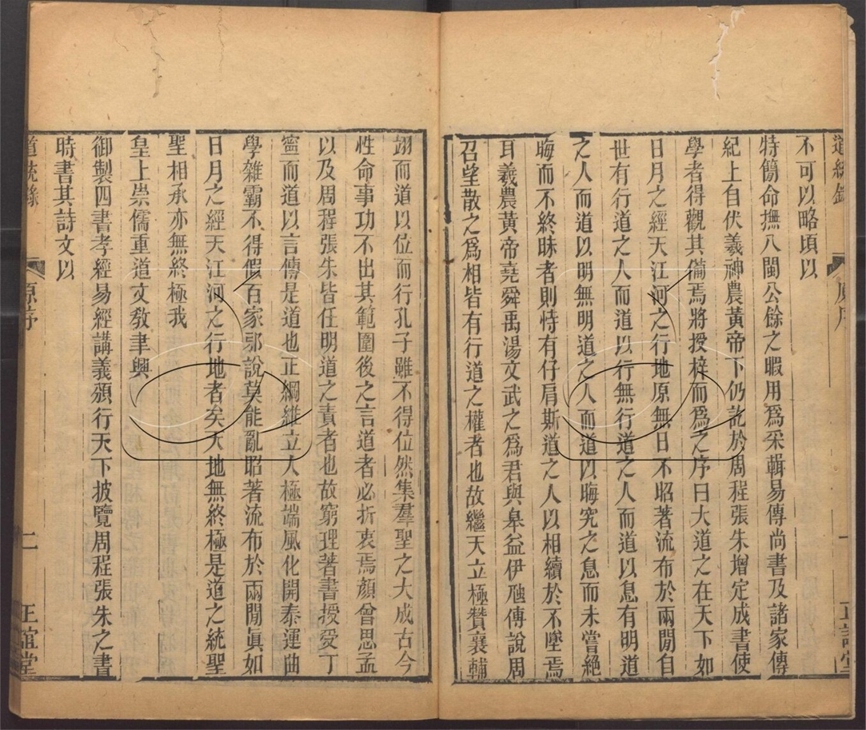 道統錄
原序
一
正誼堂
不可以略頃以
特簡命撫八閩公餘之暇用爲采輯易傳尚書及諸家傳
紀上自伏羲神農黃帝下仍訖於周程張朱增定成書使
學者得觀其備焉將授梓而爲之序曰大道之在天下如
日月之經天江河之行地原無日不昭著流布於兩閒自
世有行道之人而道以行無行道之人而道以息有明道
之人而道以明無明道之人而道以晦究之息而未嘗絕
晦而不終昧者則恃有仔肩斯道之人以相續於不墜焉
耳羲農黃帝堯舜禹湯文武之爲君與皋益伊虺傅說周
召望散之爲相皆有行道之權者也故繼天立極贊襄輔
翊而道以位而行孔子雖不得位然集羣聖之大成古今
性命事功不出其範圍後之言道者必折衷焉顏曾思孟
以及周程張朱皆任明道之責者也故窮理著書授受丁
寧而道以言傳是道也正綱維立人極端風化開泰運曲
學雜霸不得假百家邪說莫能亂昭著流布於兩閒眞如
日月之經天江河之行地者矣天地無終極是道之統聖
聖相承亦無終極我
皇上崇儒重道文敎聿興
御製四書孝經易經講義頒行天下披覽周程張朱之書
時書其詩文以
道統錄
原序
二
正誼堂